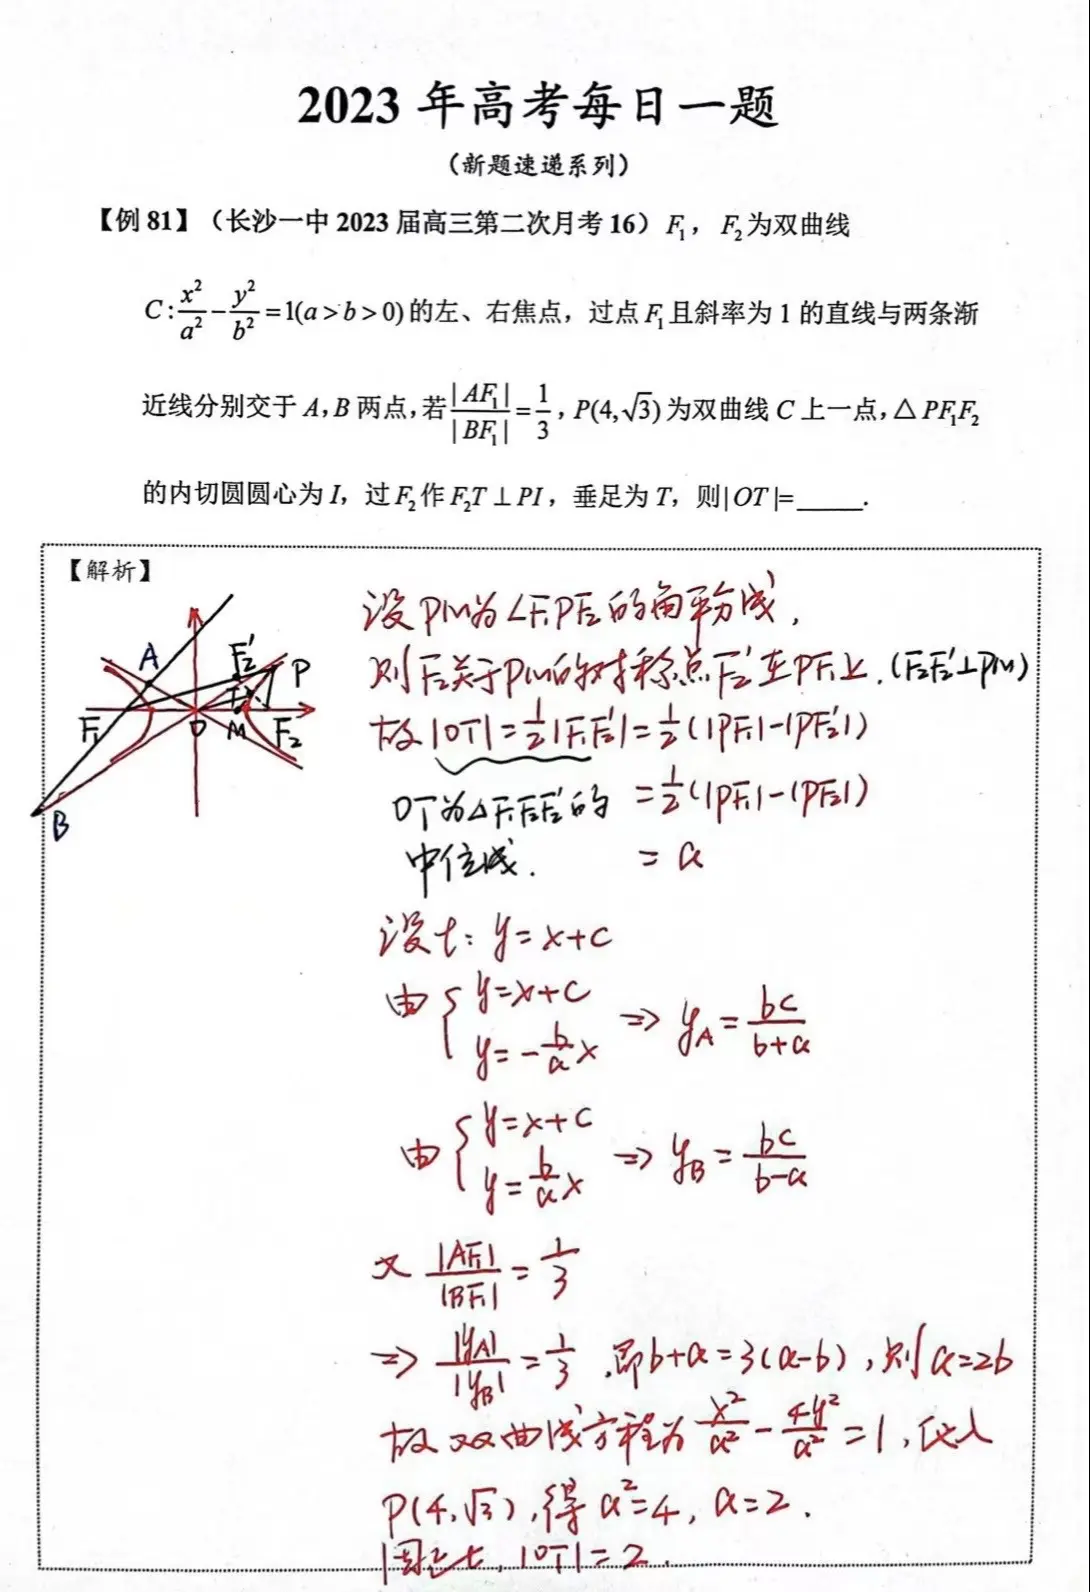 2023 年高考每日一题
（新题速递系列）
【例 81】（长沙一中 2023 届高三第二次月考 16）F₁，F₂为双曲线
C:x²/a²-y²/b²=1(a>b>0)的左、右焦点，过点F₁且斜率为 1 的直线与两条渐
近线分别交于 A,B 两点，若|AF₁|/|BF₁|=1/3，P(4,√3)为双曲线 C 上一点，△PF₁F₂
的内切圆圆心为 I，过F₂作F₂T⊥PI，垂足为 T，则|OT|=_____.
【解析】
设PM为∠F₁PF₂的角平分线,
则F₂关于PM的对称点F₂'在PF₁上.(F₂F₂'⊥PM)
故|OT|=1/2|F₁F₂'|=1/2(|PF₁|-|PF₂'|)
OT为△F₁F₂F₂'的
中位线.
=1/2(|PF₁|-|PF₂|)
=a
A
F₂'
P
T
F₁
O
M
F₂
B
设l: y=x+c
由{y=x+c
y=-b/a x
⇒ y_A=bc/(b+a)
由{y=x+c
y=b/a x
⇒ y_B=bc/(b-a)
又 |AF₁|/|BF₁|=1/3
⇒ |y_A|/|y_B|=1/3 ,即b+a=3(a-b),则a=2b
故双曲线方程为x²/a²-4y²/a²=1,代入
P(4,√3),得a²=4, a=2.
因此,|OT|=2.